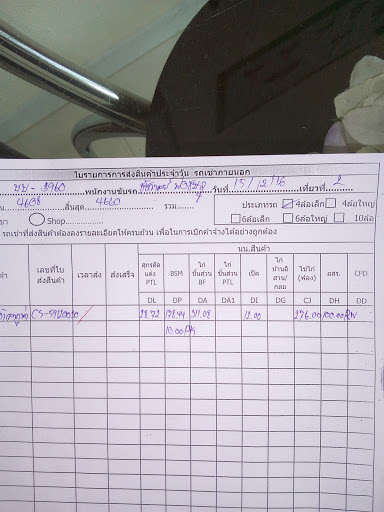 ใบรายการการส่งสินค้าประจำวัน รถเช่าภายนอก
ขบ - 3960 พนักงานขับรถ วันที่ 15/12/16 เที่ยวที่ 2
4638 สิ้นสุด 4660 รวม ประเภทรถ 4ล้อเล็ก 4ล้อใหญ่
Shop 6ล้อเล็ก 6ล้อใหญ่ 10ล้อ
รถเช่าที่ส่งสินค้าต้องลงรายละเอียดให้ครบถ้วน เพื่อในการเบิกค่าจ้างได้อย่างถูกต้อง
นน.สินค้า
เลขที่ใบส่งสินค้า เวลาส่ง ส่งเสร็จ สุกรตัดแต่ง PTL BSM ไก่ชิ้นส่วน BF ไก่ชิ้นส่วน PTL เป็ด ไก่บ้านอีสาน/กลม ไข่ไก่ (ฟอง) อสร. CPD
DL DP DA DA1 DI DG CJ DH DD
28.72 178.44 311.08 12.00 276.00 100.00
10.00